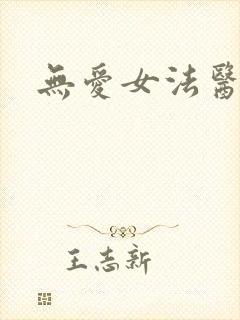 無愛女法醫
王志新